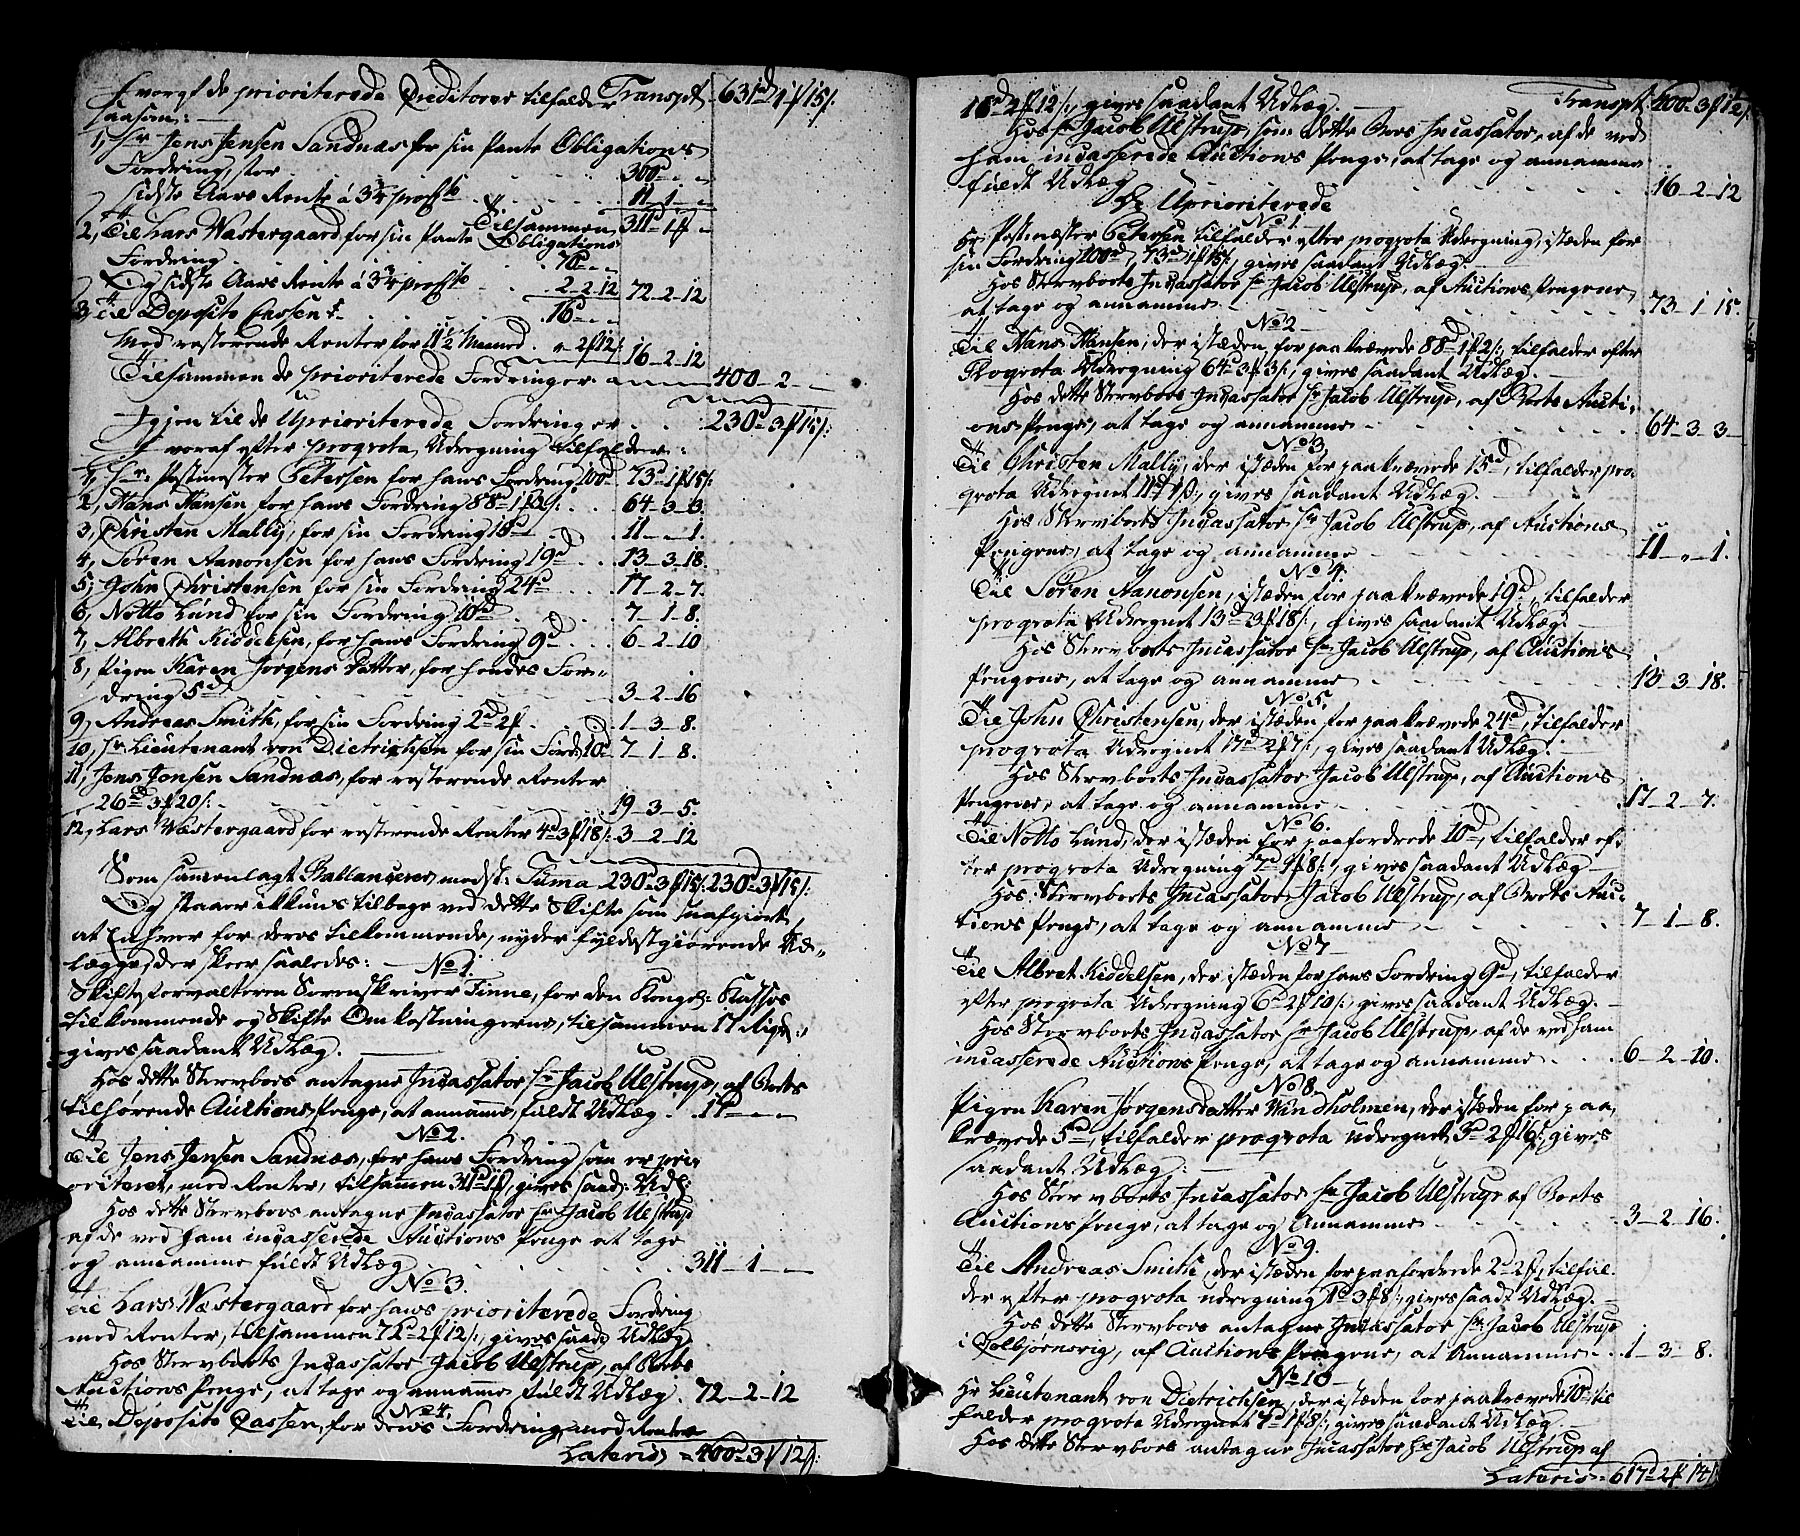 hvoraf de prioriterede Creditorer tilfalder Transpt 631d 1f 15s.
saasom:
1, Hr Jens Jensen Sandnæs for sin Pante Obligations
Fordring, stor 300d
sidste Aars Rente á 3¾ proCto 11-1-
Tilsammen 311d 1f
2, Til Lars Wæstergaard for sin Pante Obligations
Fordring 70d
Og sidste Aars Rente á 3¾ proCto 2-2-12 72-2-12
3, Til Deposito Cassen 16d
Med resterende Renter for 11½ Maaned 2f 12s. 16-2-12
Tilsammen de prioriterede Fordringer 400-2-
Igjen til de Upriorite­rede Fordringer 230d 3f 15s.
hvoraf efter progrota Udregning tilfalder:
1, Hr: Postmester Petersen for hans Fordring 100d 73d 1f 15s.
2, Hans Hansen for hans Fordring 88d 1f 2s. 64-3-3.
3, Christen Mally, for sin Fordring 15d 11-„-1.
4, Søren Aanonsen for hans Fordring 19d 13-3-18.
5, John Christensen for sin Fordring 24d 17-2-7.
6, Notto Lund for sin Fordring 10d 7-1-8.
7, Albreth Kiddelsen, for hans Fordring 9d 6-2-10
8, Pigen Karen Jørgens Datter, for hendes For-
dring 5d 3-2-16
9, Andreas Smith, for sin Fordring 2d 2f 1-3-8.
10, Hr Lieutenant von Dietrichsen for sin Fordr 10d 7-1-8.
11, Jens Jensen Sandnæs, for resterende Renter
26d 3f 20s. 19-3-5.
12, Lars Wæstergaard for resterende Renter 4d 3f 18s. 3-2-12
Som samenlagt Ballancerer modst: Summa 230d 3f 15s. 230d 3f 15s.
Og staaer ikkuns tilbage ved dette Skifte som suafgiort,
at Enhver for deres tilkommende, nyder fyldestgiørende Ud-
lægge, der skeer saaledes: No 1.
Skifteforvalteren Sorenskriver Finne, for den Kongel: Kasses
tilkommende og Skifte Omkostningerne, tilsammen 17 Rigsd:
gives saadant Udlæg.
Hos dette Stervboes antagne Incassator Hr Jacob Ulstrup, af Boets
tilhørende Auctions Penge, at annamme, fuldt Udlæg. 17d
No 2.
Til Jens Jensen Sandnæs, for hans Fordring som er pri-
oriteret, med Renter, tilsammen 311d 1f, gives saad: Udl:
Hos dette Stervboes antagne Incassator Hr Jacob Ulstrup
af de ved ham incasserede Auctions Penge at tage
og annamme fuldt Udlæg 311-1-
No 3.
Til Lars Wæstergaard for hans prioriterede Fordring
med Renter, tilsammen 72d 2f 12s., gives saadt Udlæg
Hos Stervboets Incassator Jacob Ulstrup, af Boets
Auctions Penge, at tage og annamme fuldt Udlæg. 72-2-12
No 4.
Til Deposito Cassen, for dens Fordring med Rente
Lateris 400d 3f 12s.
Transpt 400-3f 12s.
18d 2f 12s., gives saadant Udlæg.
Hos Hr Jacob Ulstrup, som dette Boes Incassator, af de ved
ham incasserede Auctions Penge, at tage og annamme
fuldt Udlæg 16-2-12
De Uprioriterede
No 1.
Hr Postmester Petersen tilfalder efter progrota Udregning, isteden for
sin Fordring 100d, 73d 1f 15s., gives saadant Udlæg.
Hos Stervboets Incassator Hr Jacob Ulstrup, af Auctions Pengene,
at tage og annamme 73-1-15.
No 2
Til Hans Hansen, der isteden for paakrævede 88d 1f 2s., tilfalder efter
Progrota Udregning 64d 3f 3s., gives saadant Udlæg.
Hos dette Stervboes Incassator Hr Jacob Ulstrup, af Boets Aucti-
ons Penge, at tage og annamme 64-3-3-
No 3.
Til Christen Mally, der isteden for paakrævede 15d, tilfalder pro-
grota Udregnet 11d 1s., gives saadant Udlæg.
Hos Stervboets Incassator Hr Jacob Ulstrup, af Auctions
Pengene, at tage og annamme 11-„-1.
No 4.
Til Søren Aanonsen, isteden for paakrævede 19d, tilfalder
progrota Udregnet 13d 3f 18s., gives saadant Udlæg.
Hos Stervboets Incassator Hr Jacob Ulstrup, af Auctions
Pengene, at tage og annamme 13-3-18.
No 5.
Til John Christensen, der isteden for paakrævede 24d, tilfalder
progrota Udregnet 17d 2f 7s., gives saadant Udlæg.
Hos Stervboets Incassator Jacob Ulstrup, af Auctions
Pengene, at tage og annamme 17-2-7.
No 6.
Til Notto Lund, der isteden for paafordrede 10d, tilfalder ef-
ter progrota Udregning 7d 1f 8s., gives saadant Udlæg
Hos Stervboets Incassator Jacob Ulstrup, af Boets Auc-
tions Penge, at tage og annamme 7-1-8.
No 7
Til Albret Kiddelsen, der isteden for hans Fordring 9d, tilfalder
efter progrota Udregning 6d 2f 10s., gives saadant Udlæg.
Hos Stervboets Incassator Hr Jacob Ulstrup, af de ved ham
incasserede Auctions Penge, at tage og annamme 6-2-10.
No 8.
Pigen Karen Jørgensdatter Windholmen, der isteden for paa-
krævede 5d, tilfalder progrota udregnet 3d 2f 16s., gives
saadant Udlæg:
Hos Stervboets Incassator Hr Jacob Ulstrup af Boets
Auctions Penge, at tage og Annamme 3-2-16.
No 9.
Til Andreas Smith, der isteden for paafordrede 2d 2f, tilfal-
der efter progrota udregning 1d 3f 8s., gives saadt Udlæg.
Hos dette Stervboes antagne Incassator Hr Jacob Ulstrup
i Colbjørnsvig, af Auctions Pengene, at Annamme 1-3-8.
No 10
Hr Lieutenant von Dietrichsen, der isteden for paakrævede 10d til-
falder progrota Udregnet 7d 1f 8s., gives saadant Udlæg.
Hos dette Stervboes antagne Incassator Hr Jacob Ulstrup af
Lateris 617d 2f 14s